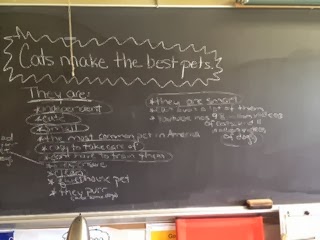 Cats make the best pets.
They are:
*independent
*cute
*small
*the most common pet in America
*easy to take care of
*don't have to train them
*clean
house pet
*they purr
*they are smart
*can own a lot of them
*Youtube has
of cats and
of dogs